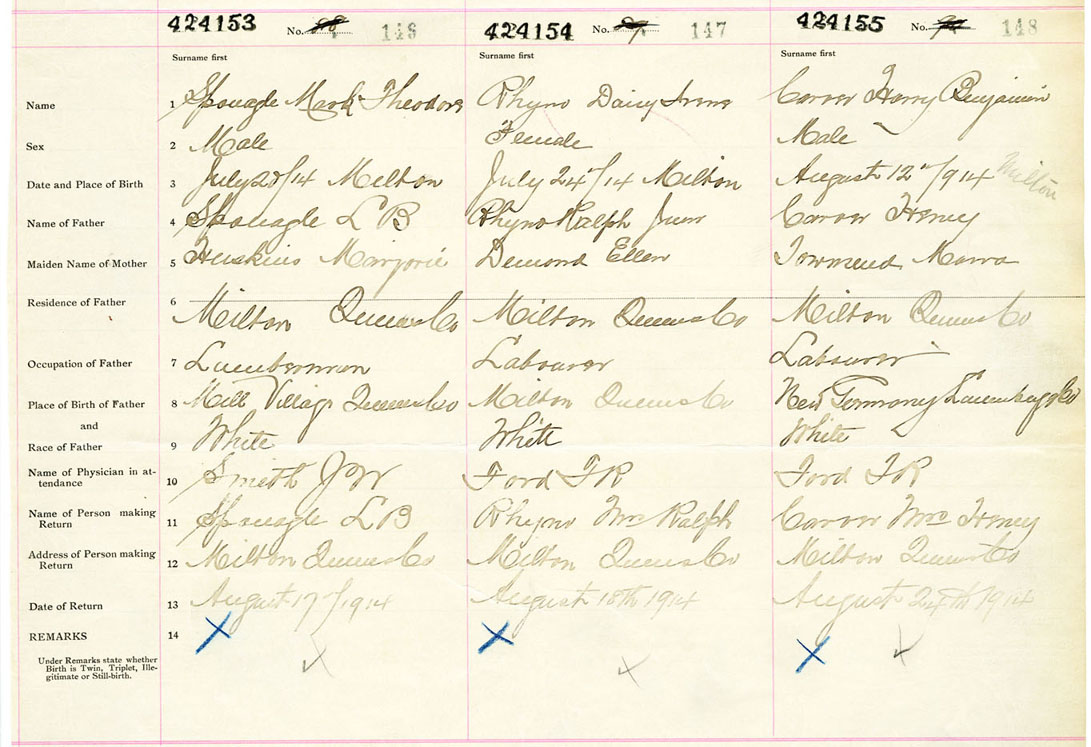 424153 No. 146 424154 No. 147 424155 No. 148
Surname first Surname first Surname first
Name 1 Spouagle Mark Theodore Rhyno Daisy Irene Carver Harry Benjamin
Sex 2 Male Female Male
Date and Place of Birth 3 July 20/14 Milton July 24/14 Milton August 12th/914 Milton
Name of Father 4 Spouagle L B Rhyno Ralph Junr Carver Henry
Maiden Name of Mother 5 Huskins Marjorie Demond Ellen Townsend
Residence of Father 6 Milton Queens Co Milton Queens Co Milton Queens Co
Occupation of Father 7 Lumberman Labourer Labourer
Place of Birth of Father 8 Mill Village Queens Co Milton Queens Co New Germany Lunenburg Co
and
Race of Father 9 White White White
Name of Physician in at-
tendance 10 Smith J W Ford F R Ford F R
Name of Person making
Return 11 Spouagle L B Rhyno Mrs Ralph Carver Mrs Henry
Address of Person making
Return 12 Milton Queens Co Milton Queens Co Milton Queens Co
Date of Return 13 August 17/1914 August 18th 1914 August 24th 1914
REMARKS 14
Under Remarks state whether
Birth is Twin, Triplet, Ille-
gitimate or Still-birth.